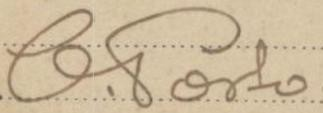 C. Porto